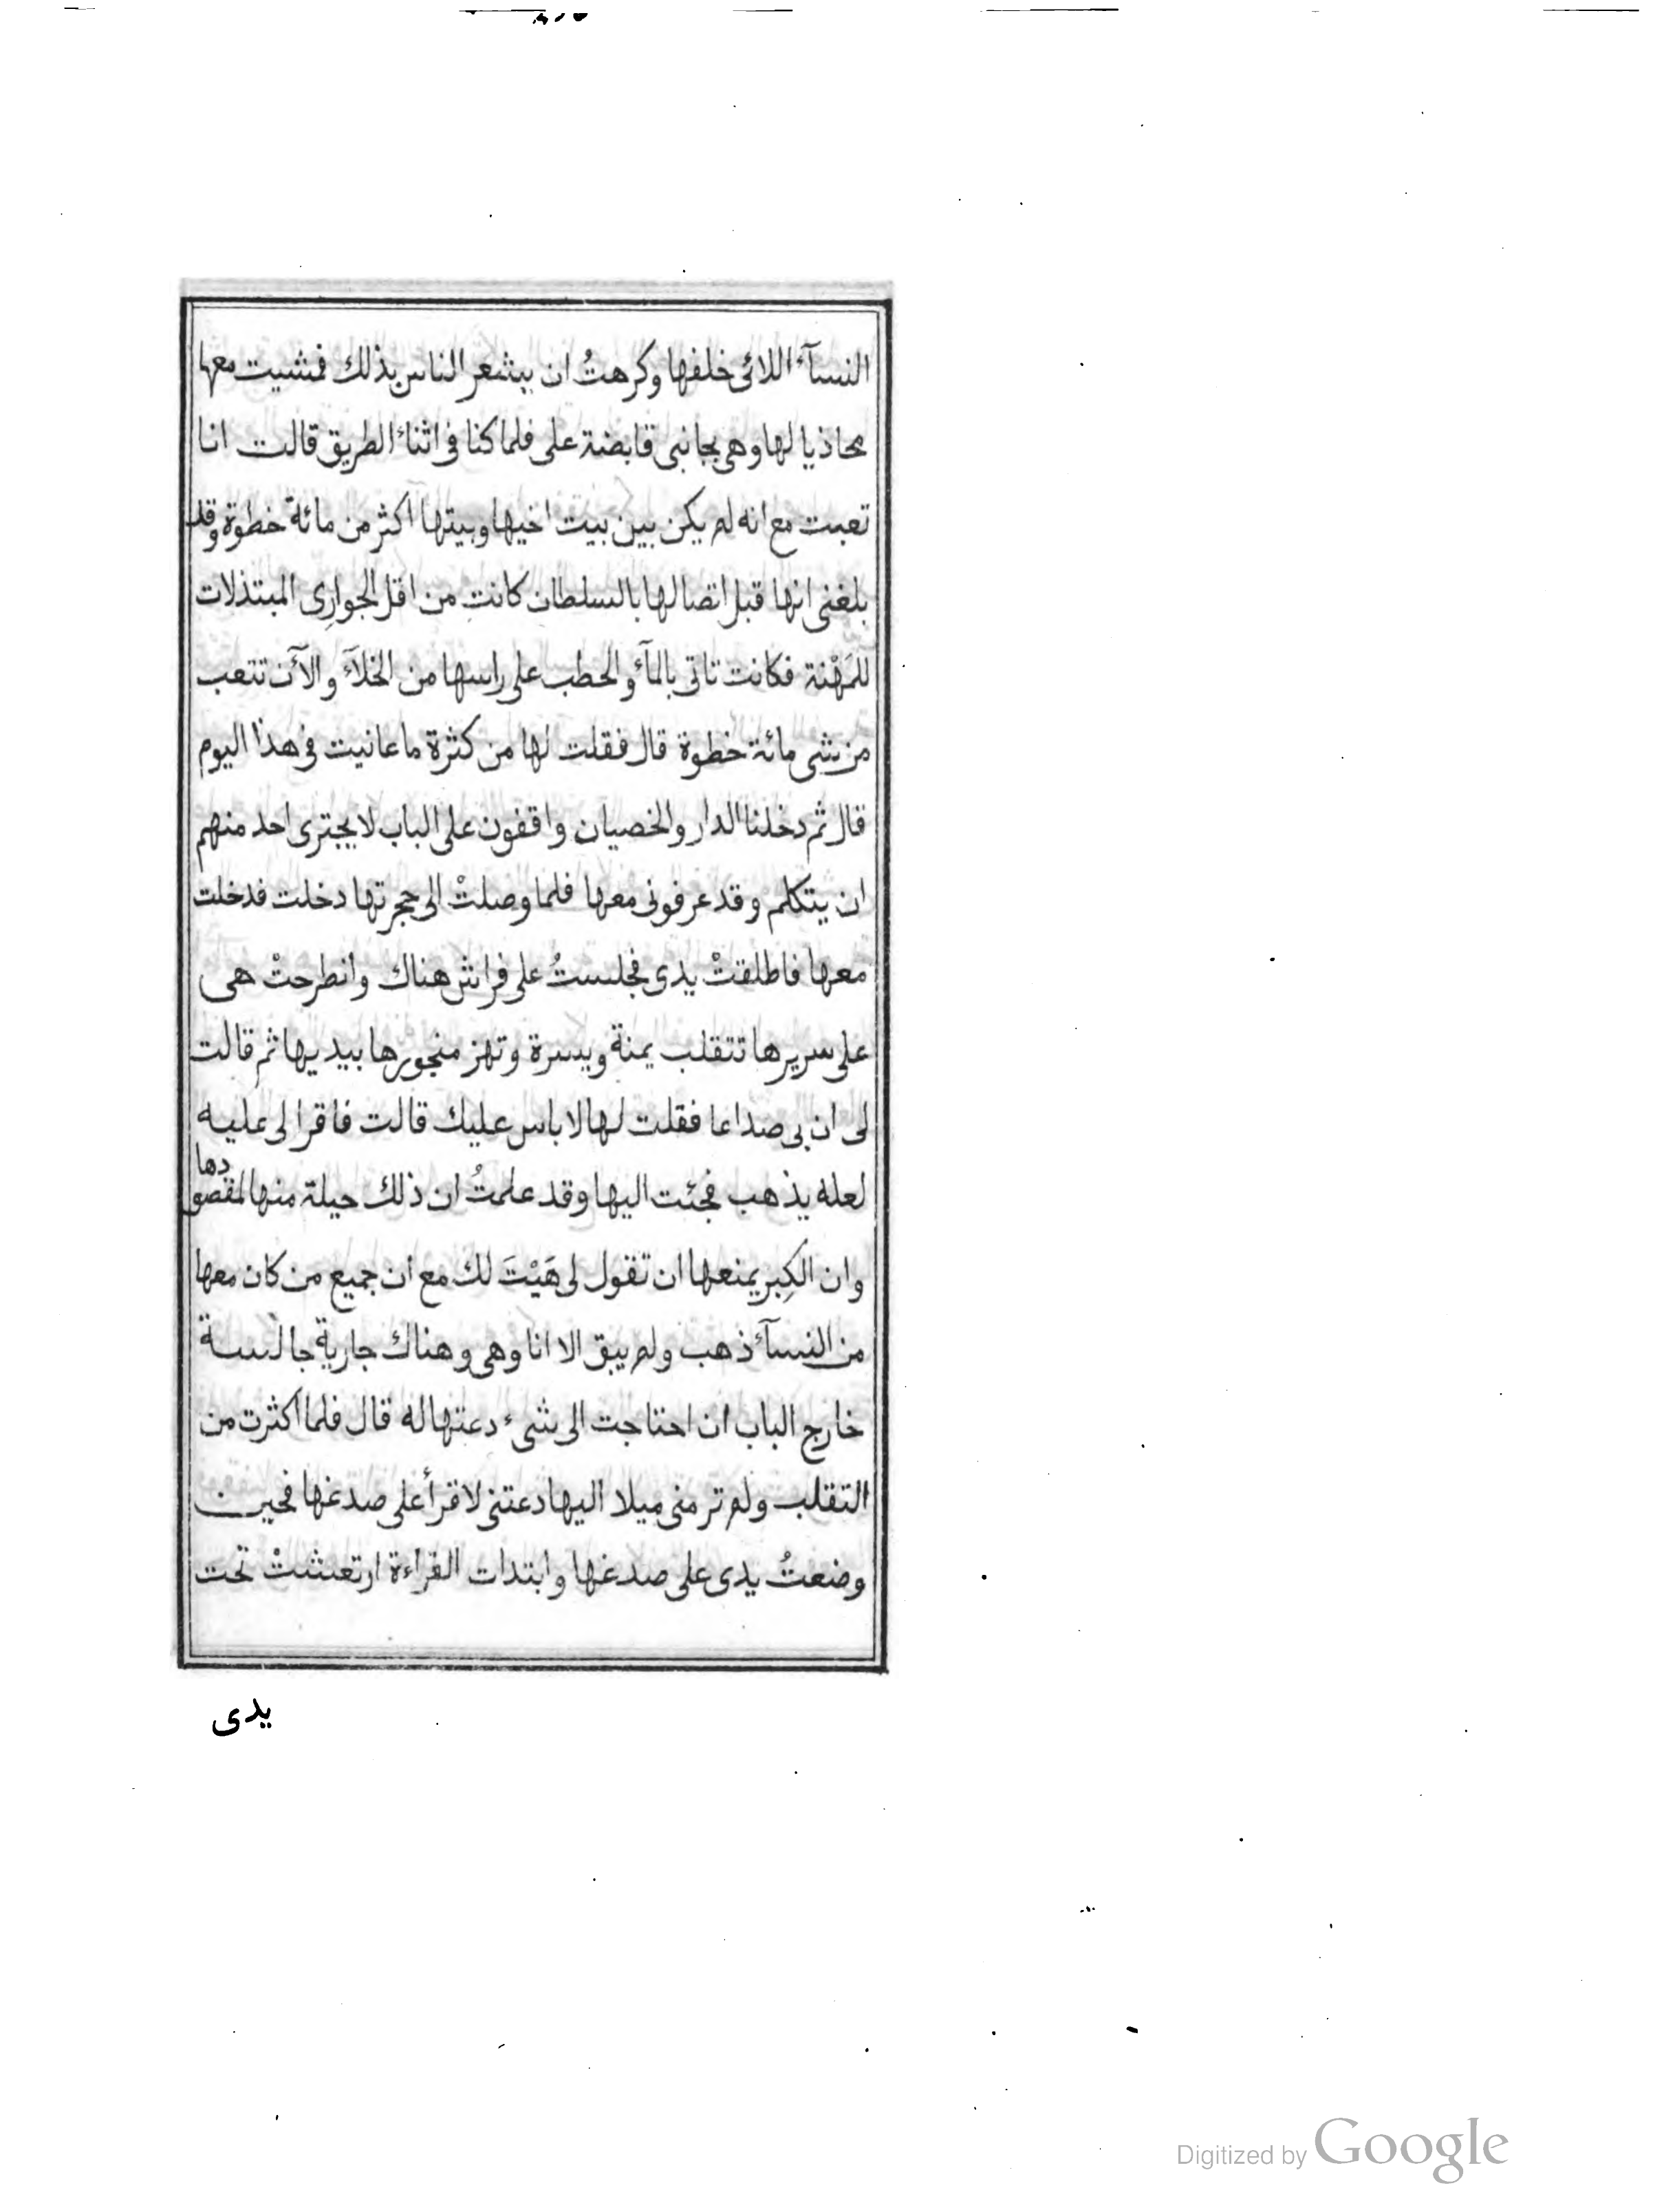 النسآء اللائى خلفها وكرهتُ ان يشعر الناس بذلك فمشيت معها
محاذيا لها وهى بجانبى قابضة على فلما كنا فى اثناء الطريق قالت انا
تعبت مع انه لم يكن بين بيت اخيها وبيتها اكثر من مائة خطوة وقد
بلغنى انها قبل اتصالها بالسلطان كانت من اقل الجوارِى المبتذلات
للمَهْنة فكانت تاتى بالمآء والحطب على راسها من الخلآء والآن تتعب
من مشى مائة خطوة قال فقلت لها من كثرة ما عانيت فى هذا اليوم
قال ثم دخلنا الدار والخصيان واقفون على الباب لا يجترى احد منهم
ان يتكلم وقد عرفونى معها فلما وصلتْ الى حجرتها دخلت فدخلت
معها فاطلقتْ يدى فجلستُ على فراش هناك وانطرحتْ هى
على سريرها تتقلب يمنة ويسرة وتهز منجورها بيديها ثم قالت
لى ان بى صداعا فقلت لها لا باس عليك قالت فاقرا لى عليه
لعله يذهب فجئت اليها وقد علمتُ ان ذلك حيلة منها لمقصودها
وان الكِبر يمنعها ان تقول لى هَيْتَ لك مع ان جميع من كان معها
من النسآء ذهب ولم يبق الا انا وهى وهناك جارية جالسة
خارج الباب ان احتاجت الى شىء دعتها له قال فلما اكثرت من
التقلب ولم تر منى ميلا اليها دعتنى لاقرأ على صدغها فحين
وضعتُ يدى على صدغها وابتدات القراءة ارتعشتْ تحت
يدى
Digitized by Google